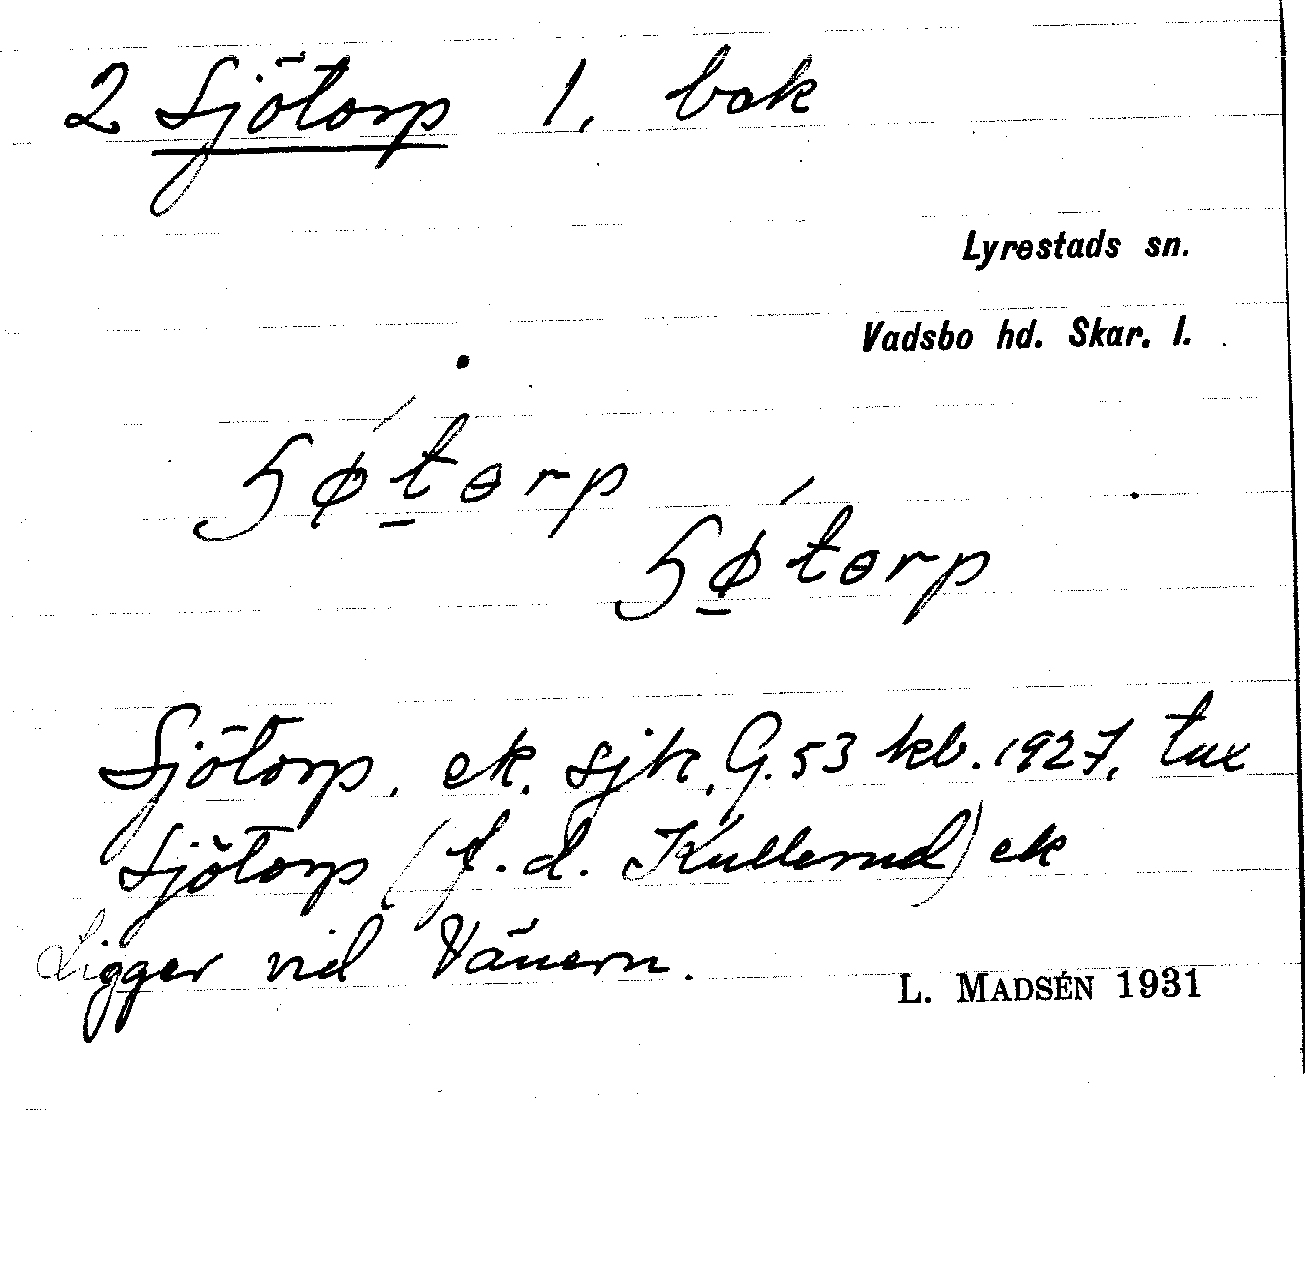 2 Sjötorp 1. bak
Lyrestads sn.
Vadsbo hd. Skar. l.
ɧø´t̲ɵrp
ɧø̲´tɵrp
Sjötorp. ek. sjh. G. 53 kb. 1927, tax
Sjötorp (f. d. Kullerud) ek
Ligger vid Vänern.
L. MADSÉN 1931